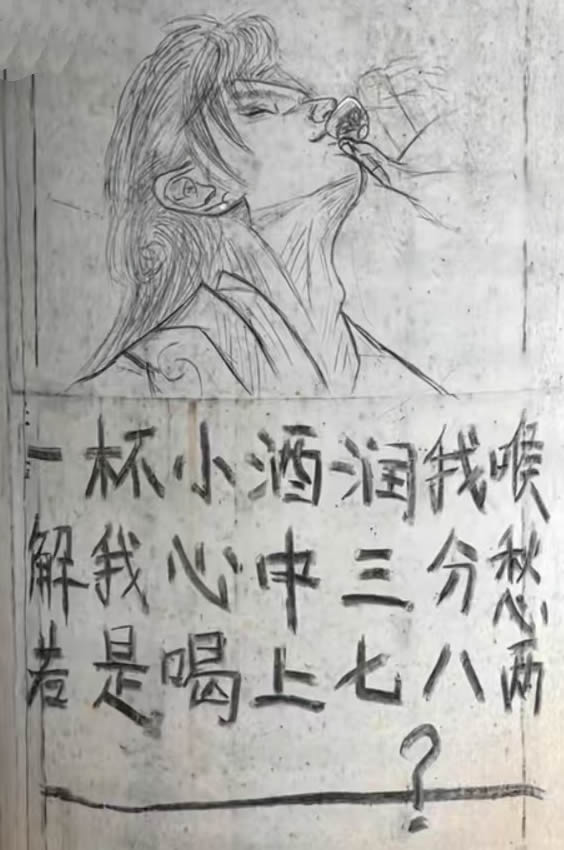 一杯小酒润我喉
解我心中三分愁
若是喝上七八两
?